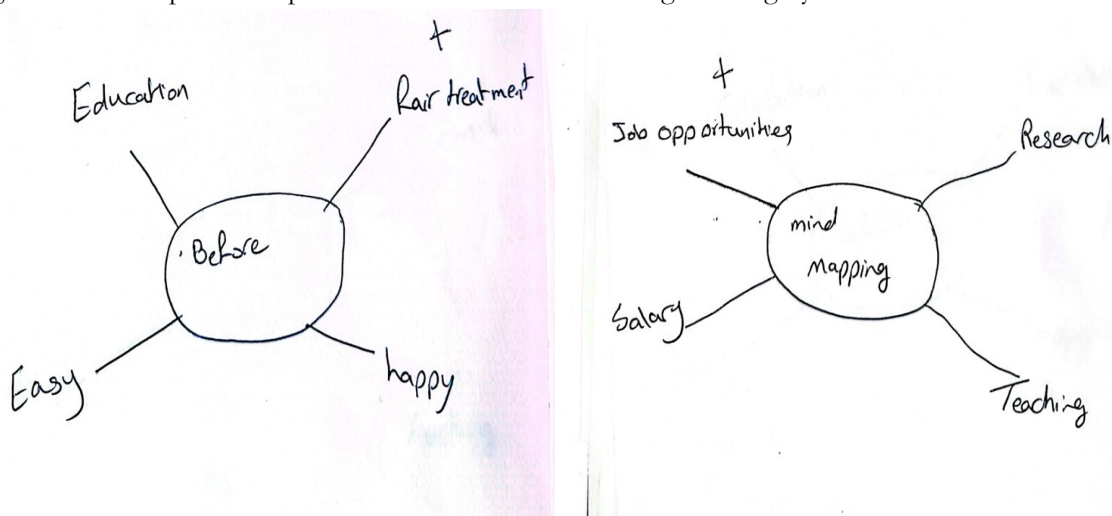 +
Education
Rair treatment
Before
Easy
happy
+
Job opportunities
Research
mind
mapping
Salary
Teaching